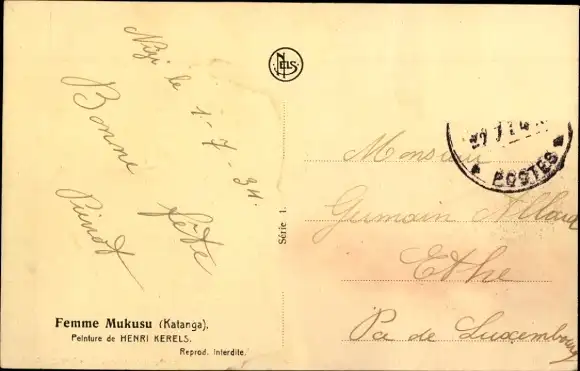 Nizi le 1-7-34
Bonne fête
NELS
Série 1.
Monsieur
Germain
Ethe
Pce de Luxembourg
POSTES
Femme Mukusu (Katanga),
Peinture de HENRI KERELS.
Reprod. interdite.